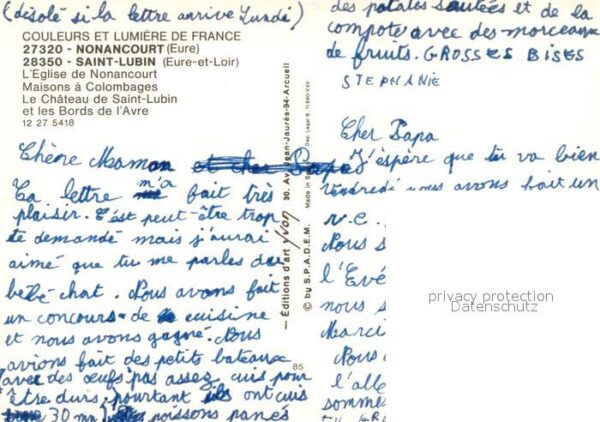 (désolé si la lettre arrive Lundi)
COULEURS ET LUMIÈRE DE FRANCE
27320 - NONANCOURT (Eure)
28350 - SAINT-LUBIN (Eure-et-Loir)
L'Eglise de Nonancourt
Maisons à Colombages
Le Château de Saint-Lubin
et les Bords de l'Avre
12 27 5418
Chère Maman et cher Papa
Ta lettre m'a fait très
plaisir. C'est peut-être trop
te demandé mais j'aurai
aimé que tu me parles du
bébé chat. Nous avons fait
un concours de cuisine
et nous avons gagné. Nous
avions fait des petits bateaux
(avec des œufs pas assez cuis pour
être durs, pourtant ils ont cuis
30 mn) poissons panés
85
— Editions d'art yvon 30, Av. Jean-Jaurès-94-Arcueil
© by S.P.A.D.E.M. Made in
des patates sautées et de la
compote avec des morceaux
de fruits. GROSSES BISES
STEPHANIE
Cher Papa
J'espère que tu va bien
Vendredi nous avons fait un
r.e.
Nous s
l'Evé
nous s
Marci
Nous
l'alle
somme
privacy protection
Datenschutz